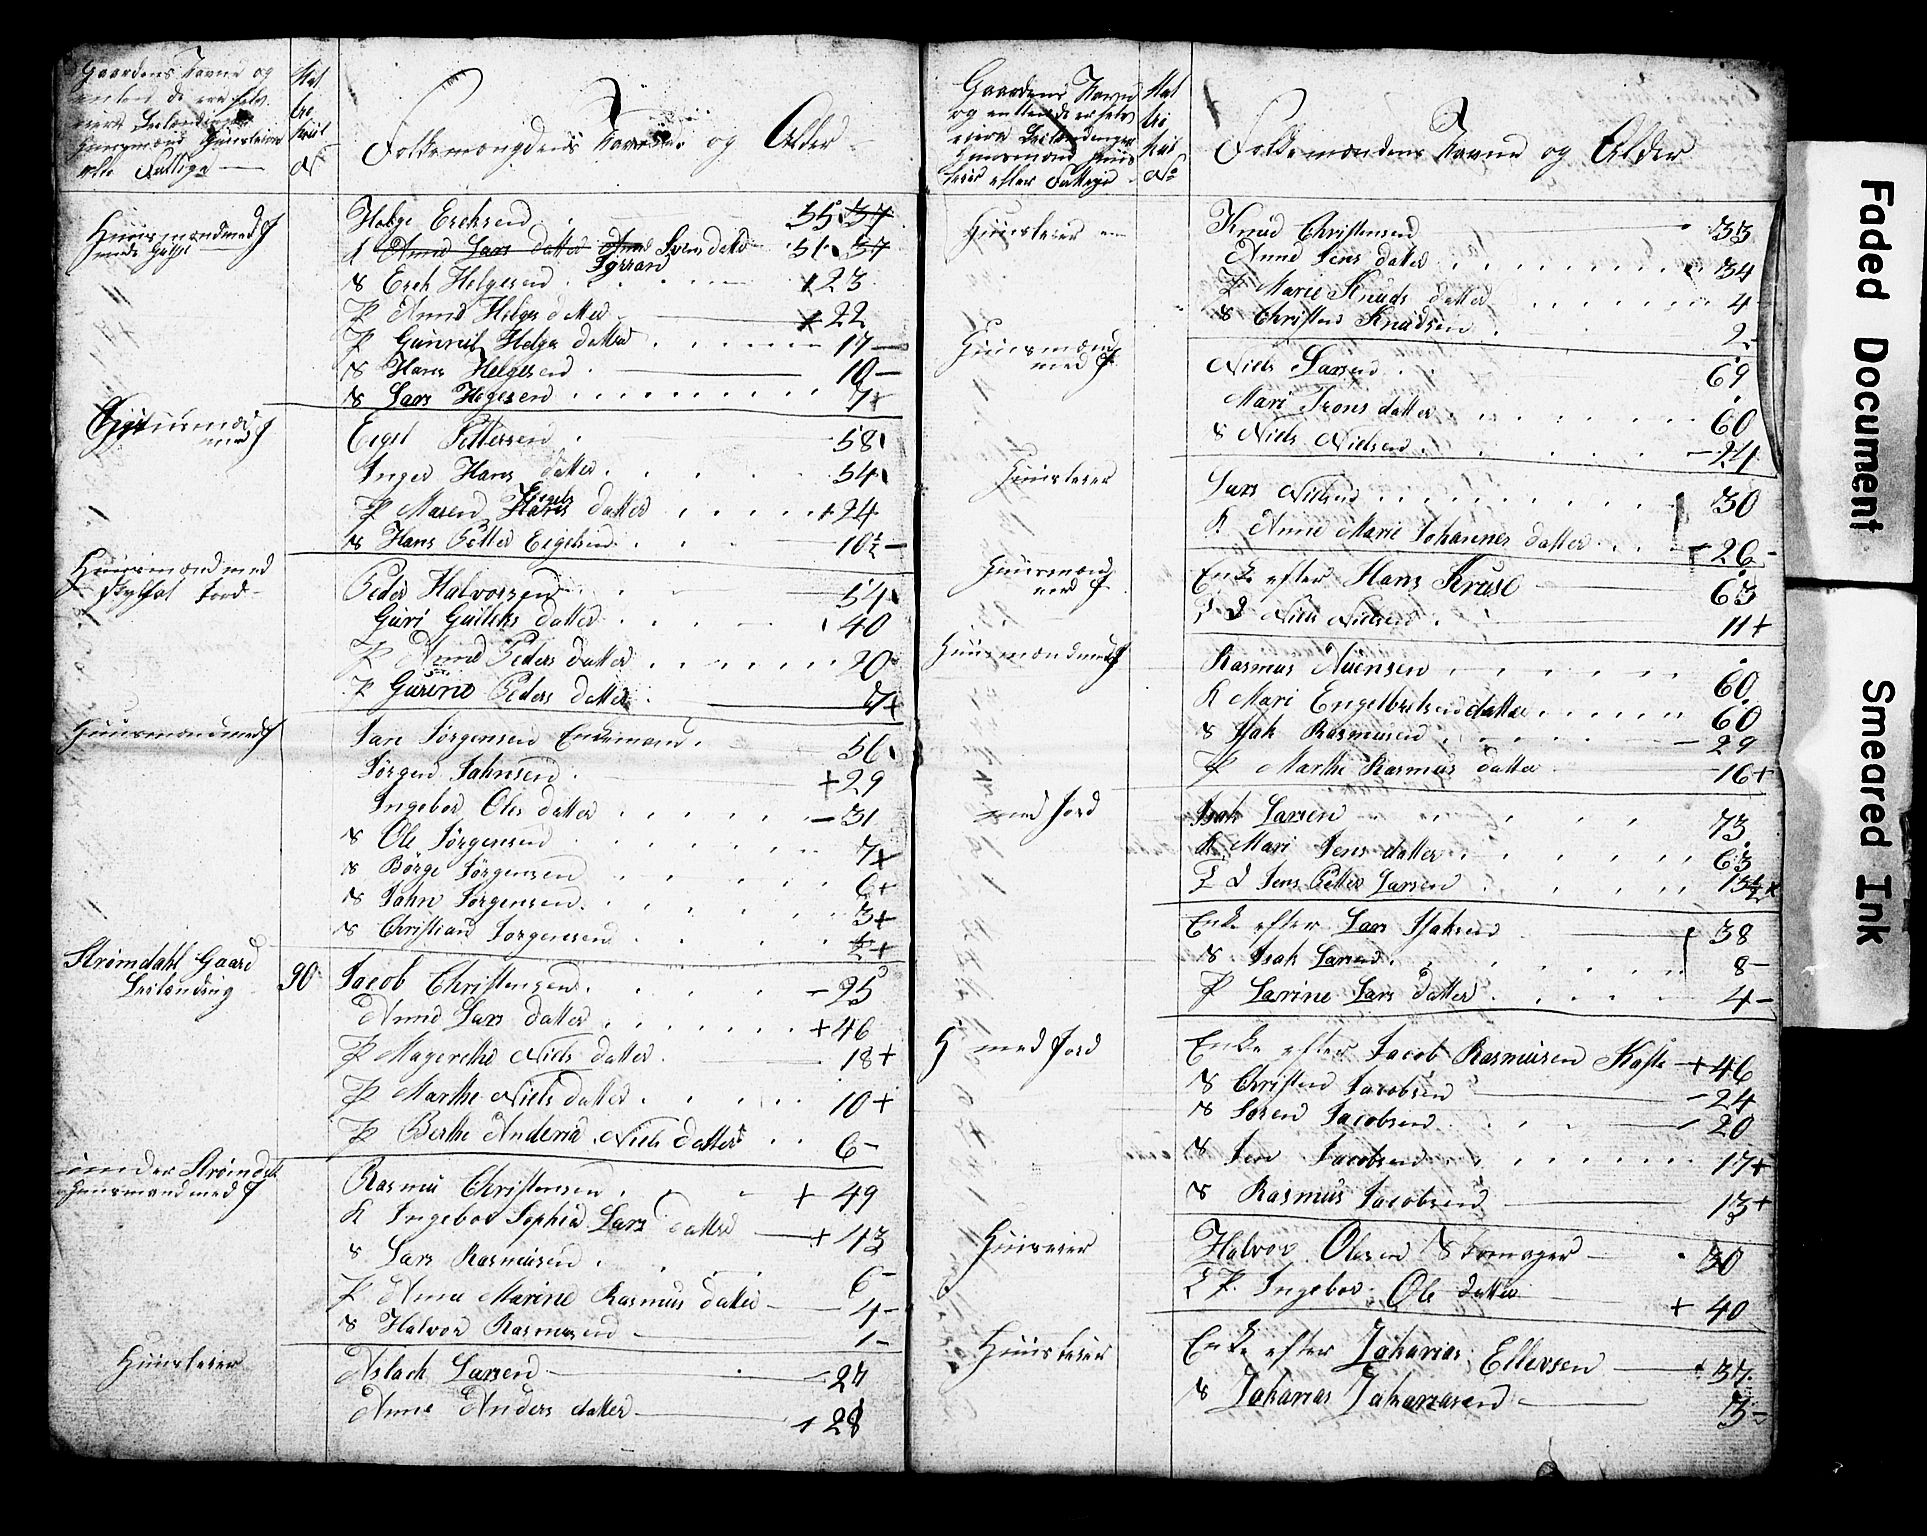 Gaardens Navne og
enten de ere selv
eiere Leilændinge
Huusmænd Huusleiere
eller Fattige
Mat
tre
kuul
No
Folkemængdens Navne og Alder
Huusmænd med J
Helge Erichsen 55 37
K Anne Lars datter Anne Svens datter 51 37
Jørran
S Erch Helgesen 23
P Anne Helges datter + 22
P Gunnil Helge datter 17 —
S Hans Helgesen 10 —
S Lars Hegesen 7 +
Huusmænd
med J
Eegel Pettersen 58
Inger Hans datter 54
Eegels
P Maren Hans datter + 24
S Hans Petter Eegelsen 10½ —
Huusmænd med
Jord
Peder Halvorsen 54
Guri Gulleks datter 40
P Anne Peders datter 20
P Gurine Peders datter 7 +
Huusmænd med J
Jan Jørgensen Enkemand 56
Jørgen Jahnsen + 29
Ingebor Oles datter — 31
S Ole Jørgensen 7 +
S Börge Jörgensen 6 +
S Jahn Jørgensen 3 +
S Christian Jorgensen ½ +
Strømdahl Gaard
Leilænding
90
Jacob Christensen — 25
Anne Lars datter + 46
P Magrethe Niels datter 18 +
P Marthe Niels datter 10 +
P Berthe Anderia Niels datter 6 —
under Strømdahl
Huusmænd med J
Rasmus Christensen + 49
K Ingebor Sophia Lars datter — + 43
S Lars Rasmusen 6 —
P Anne Marine Rasmus datter — 4 —
S Halvor Rasmusen 1 —
Huusleier
Aslach Larsen — 27
Anne Anders datter + 28
Gaardens Navn
og enten de er selv
eiere Leilændinger
Huusmænd Huus
leier eller Fattige
Mat
tri
kul
No
Folkemændens Navne og Alder
Huusleier
Knud Christensen 33
Anne Jens datter 34
P Marie Knuds datter 4
S Christen Knudsen 2 —
Huusmænd
med J
Niels Larsen 69
Mari Trons datter 60
S Niels Nielsen — 24
Huusleier
Lars Nielsen 30
K Anne Marie Johannes datter — 26 —
Huusmænd
med J
Enke efter Hans Kruse 63
Niels Nielsen 11 +
Huusmænd med J
Rasmus 60
K Mari Engelbretsen datter 60
S Isak Rasmusen — 29
P Marthe Rasmus datter 16 +
med Jord
Isak Larsen 73
K Mari Jens datter 63
Jens Petter Larsen 13½ +
Enke efter Lars Isaksen 38
S Isak Larsen 8 —
P Larine Lars datter 4 —
H med Jord
Enke efter Jacob Rasmusen Kaste — + 46
S Christen Jacobsen — 24
S Soren Jacobsen — 20
S Jen Jacobsen 17 +
S Rasmus Jacobsen 13 +
Huuseier
Halvor Olesen Skomager 30
P. Ingebor Ole datter + 40
Huusleier
Enke efter Zakarias Ellevsen — + 37
S Zakarias Zakariasen 3 —
Faded Document
Smeared Ink